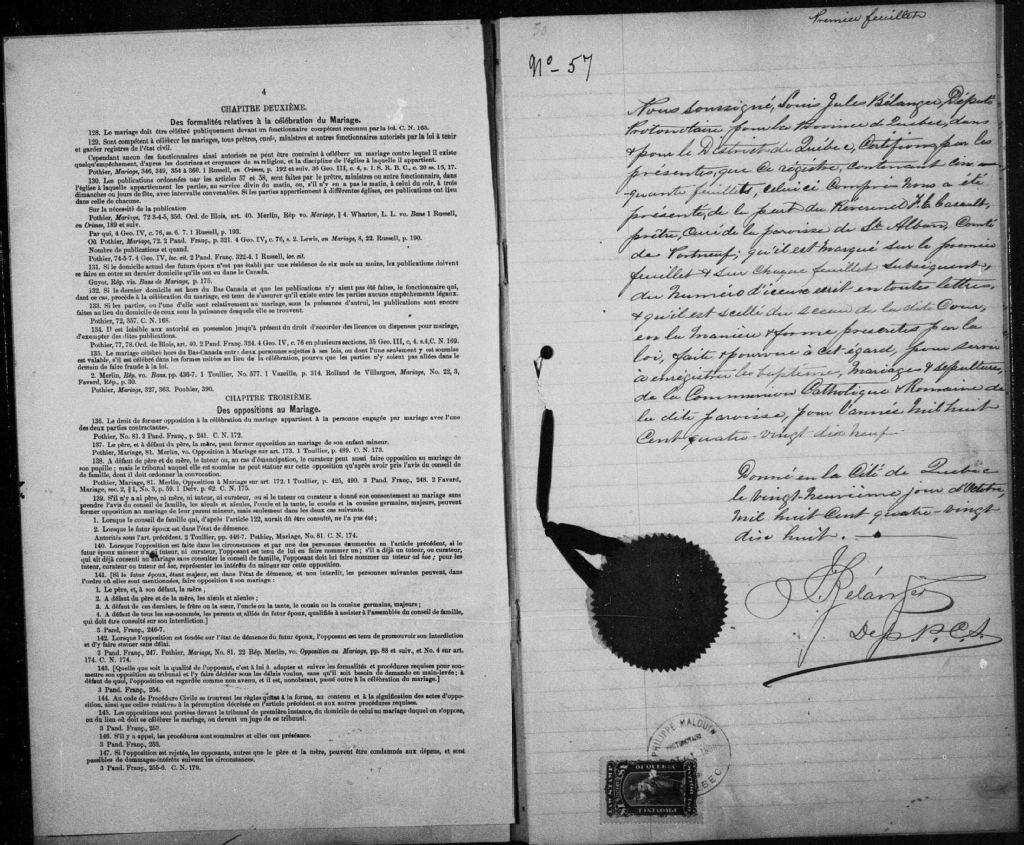 4
CHAPITRE DEUXIÈME.
Des formalités relatives à la célébration du Mariage.
128. Le mariage doit être célébré publiquement devant un fonctionnaire compétent reconnu par la loi. C. N. 165.
129. Sont compétent à célébrer les mariages, tous prêtres, curés, ministres et autres fonctionnaires autorisés par la loi à tenir
et garder registres de l'état civil.
Cependant aucun des fonctionnaires ainsi autorisés ne peut être contraint à célébrer un mariage contre lequel il existe
quelqu'empêchement, d'après les doctrines et croyances de sa religion, et la discipline de l'église à laquelle il appartient.
Pothier, Mariage, 346, 349, 354 à 360. 1 Russell, on Crimes, p. 192 et suiv. 36 Geo. III, c. 4, s. 1. S. R. B. C., c. 20 ss. 16, 17.
130. Les publications ordonnées par les articles 57 et 58, sont faites par le prêtre, ministres ou autre fonctionnaire, dans
l'église à laquelle appartiennent les parties, au service divin du matin, ou, s'il n'y en a pas le matin, à celui du soir, à trois
dimanches ou jours de fête, avec intervalle convenables. Si les parties appartiennent à différentes églises, ces publications ont lieu
dans celle de chacune.
Sur la nécessité de la publication
Pothier, Mariage, 72 3-4-5, 356. Ord. de Blois, art. 40. Merlin, Rép vo. Mariage, § 4. Wharton, L. L. vo. Bans 1 Russell,
on Crimes, 189 et suiv.
Par qui, 4 Geo. IV, c. 76, ss. 6. 7. 1 Russell, p. 193.
Où Pothier, Mariage, 72. 2 Pand. Franç., p. 321. 4 Geo. IV, c. 76, s. 2. Lewis, on Mariage, 8, 22. Russell, p. 190.
Nombre de publications et quand.
Pothier, 74-5-7. 4 Geo. IV, loc. cit. 2 Pand. Franç. 322-4. 1 Russell, loc. cit.
131. Si le domicile actuel des futurs époux n'est pas établi par une résidence de six mois au moins, les publications doivent
se faire en outre au dernier domicile qu'ils ont eu dans le Canada.
Guyot, Rép. vis. Bans de Mariage, p. 175.
132. Si le dernier domicile est hors du Bas Canada et que les publications n'y aient pas été faites, le fonctionnaire qui,
dans ce cas, procède à la célébration du mariage, est tenu de s'assurer qu'il existe entre les parties aucuns empêchements légaux.
133. Si les parties, ou l'une d'elle sont relativement au mariage, sous la puissance d'autrui, les publications sont encore
faites au lieu du domicile de ceux sous la puisance desquels elle se trouvent.
Pothier, 72, 357. C. N. 168.
134. Il est loisible aux autorité en possession jusqu'à présent du droit d'accorder des licences ou dispenses pour mariage,
d'exempter des dites publications.
Pothier, 77, 78. Ord. de Blois, art. 40. 2 Pand. Franç. 324. 4 Geo. IV, c. 76 en plusieurs sections, 35 Geo. III, c. 4. s.4, C. N. 169.
135. Le mariage célébré hors du Bas-Canada entre deux personnes sujettes à ses lois, ou dont l'une seulement y est soumise
est valable, s'il est célébré dans les formes usitées au lieu de la célébration, pourvu que les parties n'y soient pas allées dans le
dessein de faire fraude à la loi.
2. Merlin, Rép. vo. Bans, pp. 436-7. 1 Toullier, No. 577. 1 Vazeille, p. 314. Rolland de Villargues, Mariage, No. 22, 3,
Favard, Rép., p. 30.
Pothier, Mariage, 327, 363. Pouhier, 390.
CHAPITRE TROISIÈME.
Des oppositions au Mariage.
136. Le droit de former opposition à la célébration du mariage appartient à la personne engagée par mariage avec l'une
des deux parties contractantes.
Pothier, No. 81. 3 Pand. Franç., p. 241. C. N. 172.
137. Le père, et à défaut du père, la mère, peut former opposition au mariage de son enfant mineur.
Pothier, Mariage, 81. Merlin, vo. Opposition à Mariage sur art. 173. 1 Toullier, p. 489. C. N. 173.
138. A défaut de père et de mère, le tuteur ou, au cas d'émancipation, le curateur peut aussi faire opposition au mariage de
son pupille ; mais le tribunal auquel elle est soumise ne peut statuer sur cette opposition qu'après avoir pris l'avis du conseil de
famille, dont il doit ordonner la convocation.
Pothier, Mariage, 81. Merlin, Opposition à Mariage sur art. 172. 1 Toullier, p. 425, 490. 3 Pand. Franç., 248. 2 Favard,
Mariage, sec. 2, § 1, No. 3, p. 59. 1 Delv. p. 62. C. N. 175.
139. S'il n'y a ni père, ni mère, ni tuteur, ni curateur, ou si le tuteur ou curateur a donné son consentement au mariage sans
prendre l'avis du conseil de famille, les aïeuls et aïeules, l'oncle et la tante, le cousin et la cousine germains, majeurs, peuvent
former opposition au mariage de leur parent mineur, mais seulement dans les deux cas suivants.
1. Lorsque le conseil de famille qui, d'après l'article 122, aurait dû être consulté, ne l'a pas été ;
2. Lorsque le futur époux est dans l'état de démence.
Autorités sous l'art. précédent. 2 Toullier, pp. 446-7. Pothier, Mariage, No. 81. C. N. 174.
140. Lorsque l'opposition est faite dans les circonstances et par une des personnes énumérées en l'article précédent, si le
futur époux mineur n'a ni tuteur, ni curateur, l'opposant est tenu de lui en faire nommer un ; s'il a déjà un tuteur, ou curateur,
qui ait déjà consenti au mariage sans consulter le conseil de famille, l'opposant doit lui faire nommer un tuteur ad hoc ; pour les
tuteur, curateur ou tuteur ad hoc, représenter les intérêts du mineur sur cette opposition.
141. [Si le futur époux, étant majeur, est dans l'état de démence, et non interdit, les personnes suivantes peuvent, dans
l'ordre où elles sont mentionnées, faire opposition à son mariage :
1. Le père, et, à son défaut, la mère ;
2. A défaut du père et de la mère, les aïeuls et aïeules ;
3. A défaut de ces derniers, le frère ou la sœur, l'oncle ou la tante, le cousin ou la cousine germains, majeurs ;
4. A défaut de tous les sus-nommés, les parents et alliés du futur époux, qualifiés à assister à l'assemblée du conseil de famille,
qui doit être consulté sur son interdiction.]
3 Pand, Franç., 246-7.
142. Lorsque l'opposition est fondée sur l'état de démence du futur époux, l'opposant est tenu de promouvoir son interdiction
et d'y faire statuer sans délai.
3 Pand. Franç., 247. Pothier, Mariage, No. 81. 22 Rép. Merlin, vo. Opposition au Mariage, pp. 88 et suiv., et No. 4 sur art.
174. C. N. 174.
143. [Quelle que soit la qualité de l'opposant, c'est à lui à adopter et suivre les formalités et procédures requises pour sou-
mettre son opposition au tribunal et l'y faire décider sous les délais voulus, sans qu'il soit besoin de demande en main-levée ; à
défaut de quoi, l'opposition est regardée comme non avenue, et il est, nonobstant, passé outre à la célébration du mariage.]
3 Pand. Franç., 254.
144. Au code de Procédure Civile se trouvent les règles quant à la forme, au contenu et à la signification des actes d'oppo-
sition, ainsi que celles relatives à la péremption décrétée en l'article précédent et aux autres procédures requises.
145. Les oppositions sont portées devant le tribunal de première instance, du domicile de celui au mariage duquel on s'oppose,
ou du lieu où doit se célébrer le mariage, ou devant un juge de ce tribunal.
3 Pand. Franç., 253.
146. S'il y a appel, les procédures sont sommaires et elles ont préséance.
3 Pand. Franç., 253.
147. Si l'opposition est rejetée, les opposants, autres que le père et la mère, peuvent être condamnés aux dépens, et sont
passibles de dommages-intérêts suivant les circonstances.
3 Pand. Franç., 255-6. C. N. 179.
Premier feuillet
No - 57
Nous soussigné, Louis Jules Bélanger, Député
Protonotaire, pour la Province de Québec, dans
& pour le District de Québec, Certifions par les
présentes, que ce régistre, contenant cin-
quante feuillets, celui ci compris nous a été
présenté, de la part du Reverend F. E. Casault
prêtre, Curé de la paroisse de St Alban, Comté
de Portneuf; qu'il est marqué sur le premier
feuillet & sur chaque feuillet subséquent,
du numéro d'iceux écrit en toutes lettres,
& qu'il est scellé du sceau de la dite Cour,
en la manière & forme prescrites par la
loi, faite & pourvue à cet égard, pour servir
à enrégistrer les baptêmes, mariages & sépultures,
de la Communion Catholique & Romaine de
la dite paroisse, pour l'année mil huit
Cent quatre-vingt dix neuf.
Donné en la Cité de Québec
le vingt neuvième jour d'Octobre,
mil huit Cent quatre-vingt
dix huit. —
Bélanger
Dep P. C. S.
PHILIPPE MALOUIN
PROTONOTAIRE
QUEBEC
$1 LAW STAMP $1
OF QUEBEC
PROVINCE